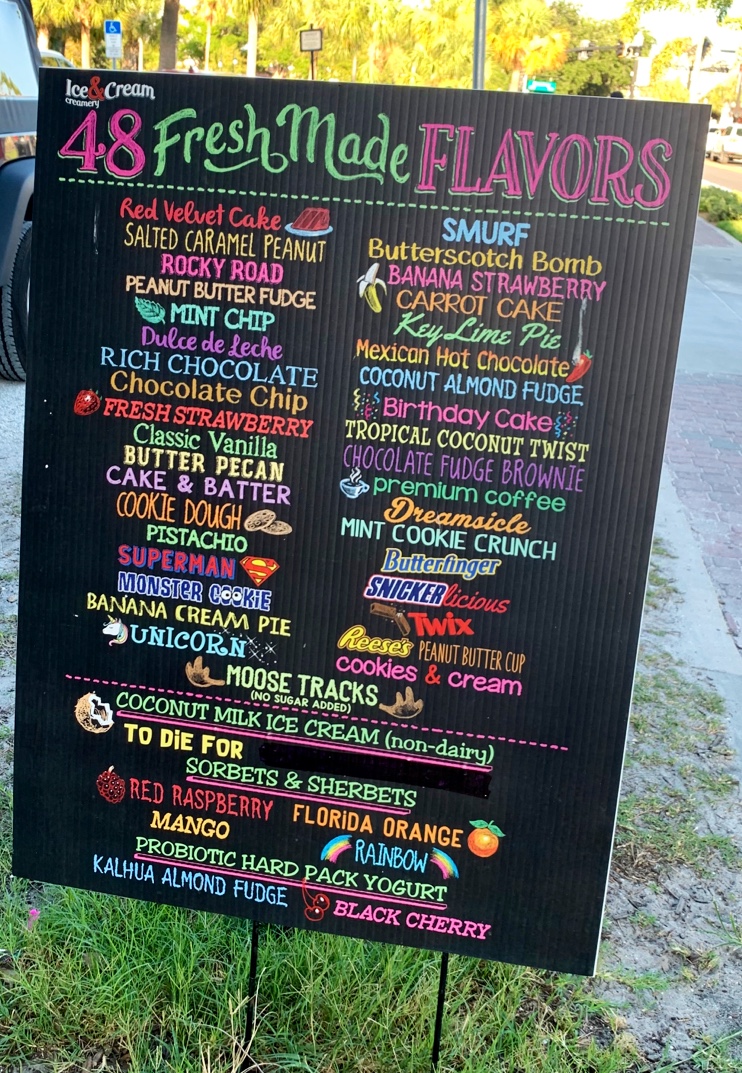 Ice & Cream
creamery
48 Fresh Made FLAVORS
Red Velvet Cake
SALTED CARAMEL PEANUT
ROCKY ROAD
PEANUT BUTTER FUDGE
MINT CHIP
Dulce de Leche
RICH CHOCOLATE
Chocolate Chip
FRESH STRAWBERRY
Classic Vanilla
BUTTER PECAN
CAKE & BATTER
COOKIE DOUGH
PISTACHIO
SUPERMAN
MONSTER COOKIE
BANANA CREAM PIE
UNICORN
SMURF
Butterscotch Bomb
BANANA STRAWBERRY
CARROT CAKE
Key Lime Pie
Mexican Hot Chocolate
COCONUT ALMOND FUDGE
Birthday Cake
TROPICAL COCONUT TWIST
CHOCOLATE FUDGE BROWNIE
premium coffee
Dreamsicle
MINT COOKIE CRUNCH
Butterfinger
SNICKERlicious
Twix
Reese's PEANUT BUTTER CUP
cookies & cream
MOOSE TRACKS
(NO SUGAR ADDED)
COCONUT MILK ICE CREAM (non-dairy)
TO DIE FOR
SORBETS & SHERBETS
RED RASPBERRY
FLORIDA ORANGE
MANGO
RAINBOW
PROBIOTIC HARD PACK YOGURT
KALHUA ALMOND FUDGE
BLACK CHERRY